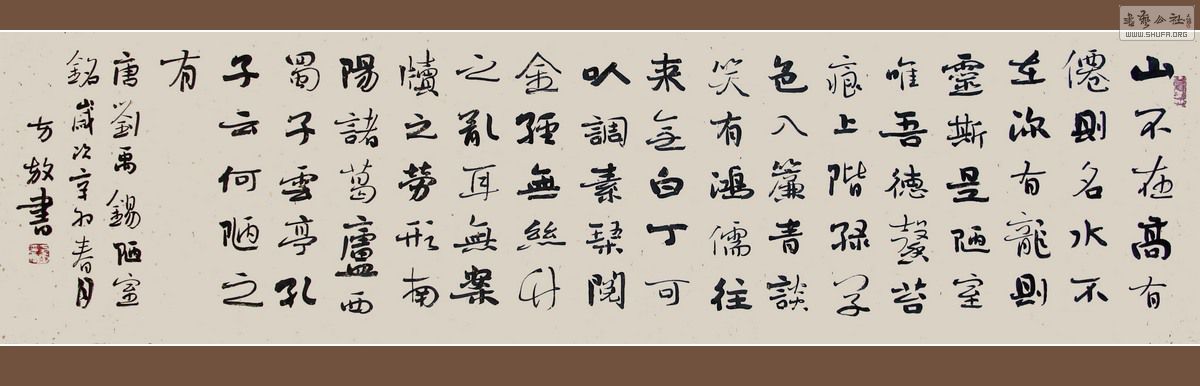 山不在高有
僊則名水不
在深有龍則
靈斯是陋室
唯吾德馨苔
痕上階綠草
色入簾青談
笑有鴻儒往
来無白丁可
以調素琴閱
金經無絲竹
之亂耳無案
牘之勞形南
陽諸葛廬西
蜀子雲亭孔
子云何陋之
有
唐劉禹錫陋室
銘歲次辛卯春月
方放書
WWW.SHUFA.ORG